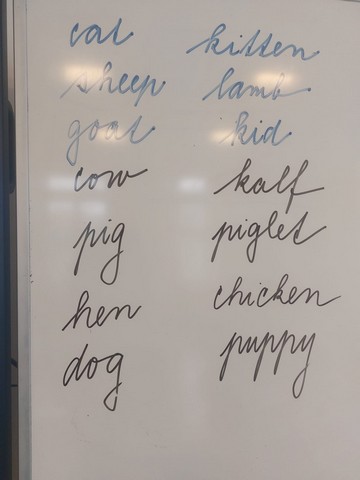 cat kitten
sheep lamb
goat kid
cow kalf
pig piglet
hen chicken
dog puppy